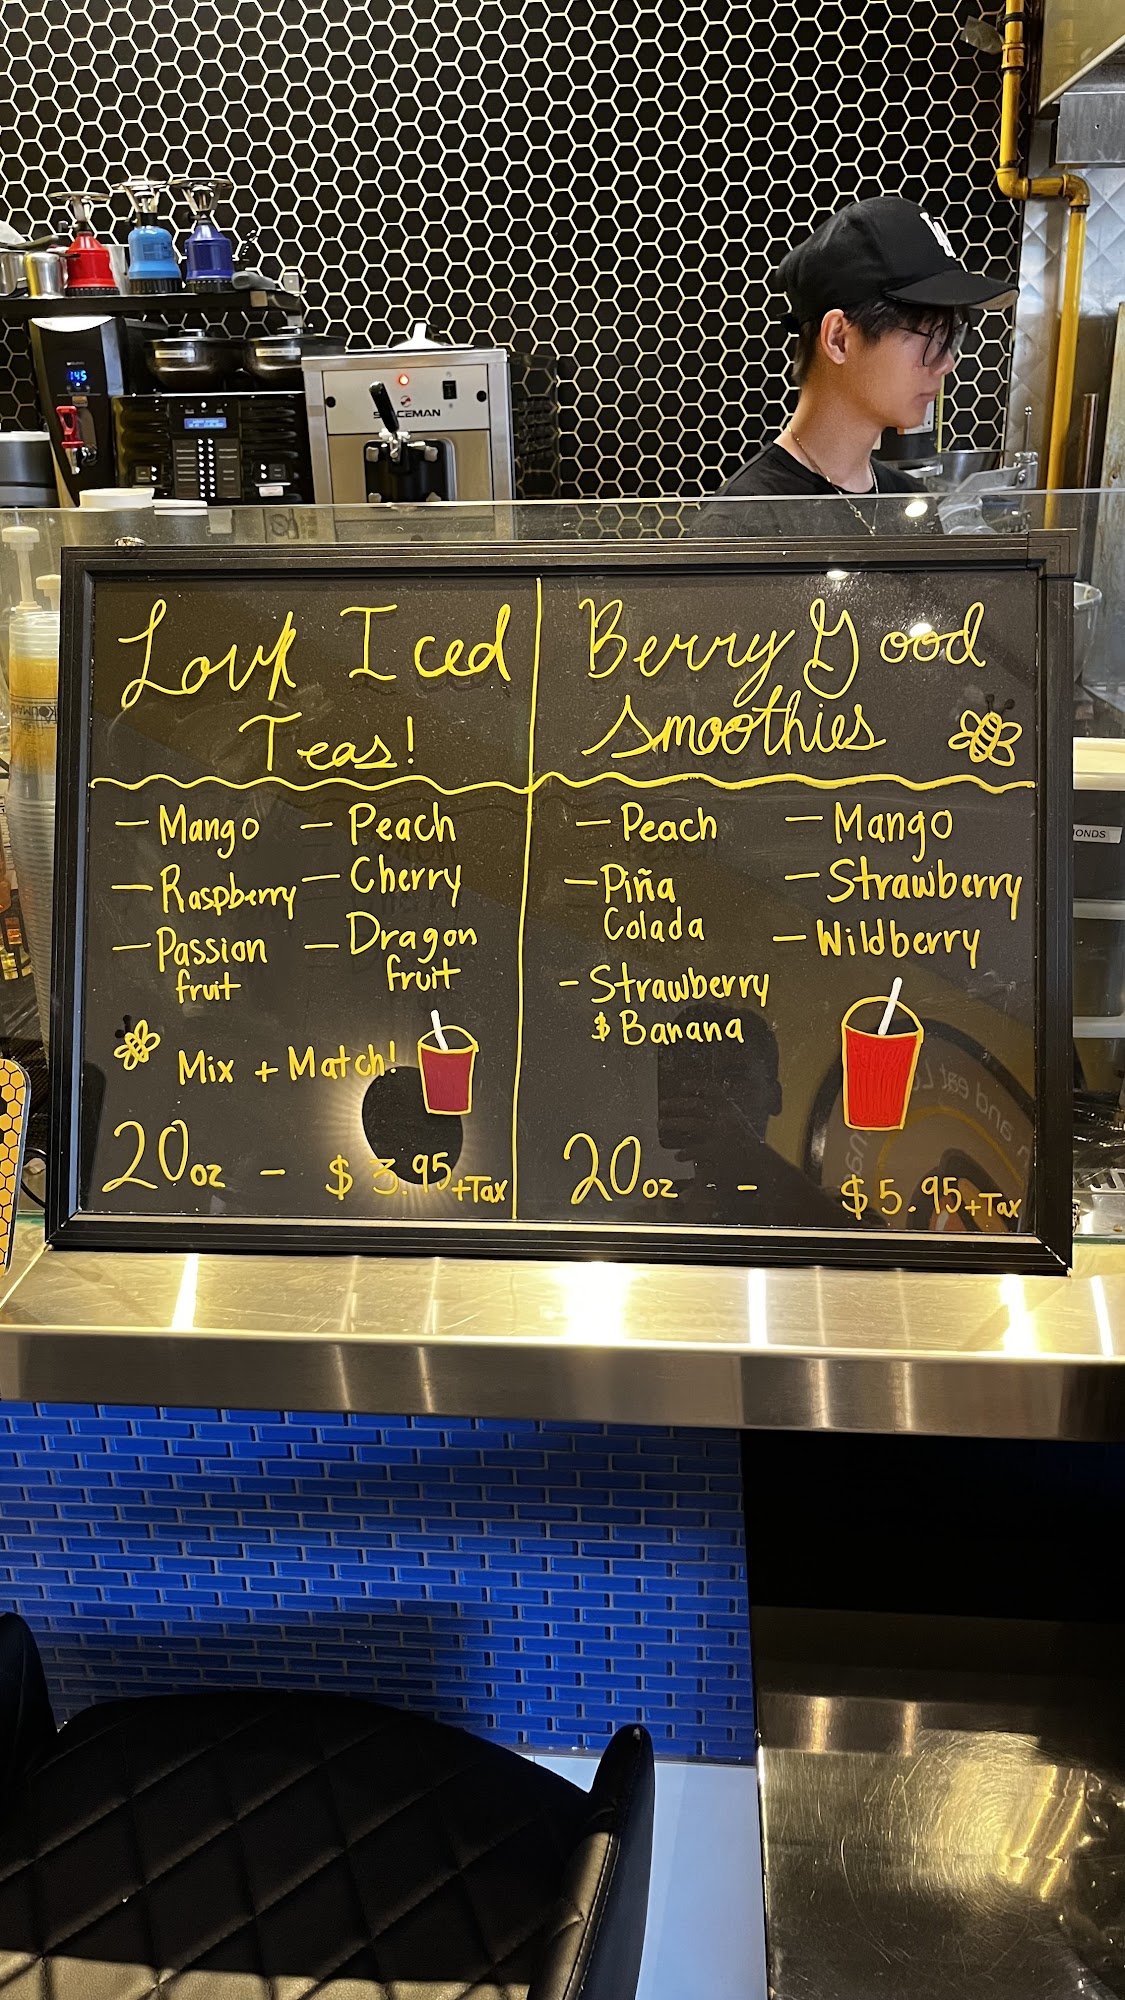 145
SPACEMAN
Louk Iced
Teas!
— Mango
— Raspberry
— Passion
fruit
— Peach
— Cherry
— Dragon
fruit
Mix + Match!
20oz - $3.95+Tax
Berry Good
Smoothies
— Peach
— Piña
Colada
- Strawberry
& Banana
— Mango
— Strawberry
— Wildberry
20oz - - $5.95+Tax